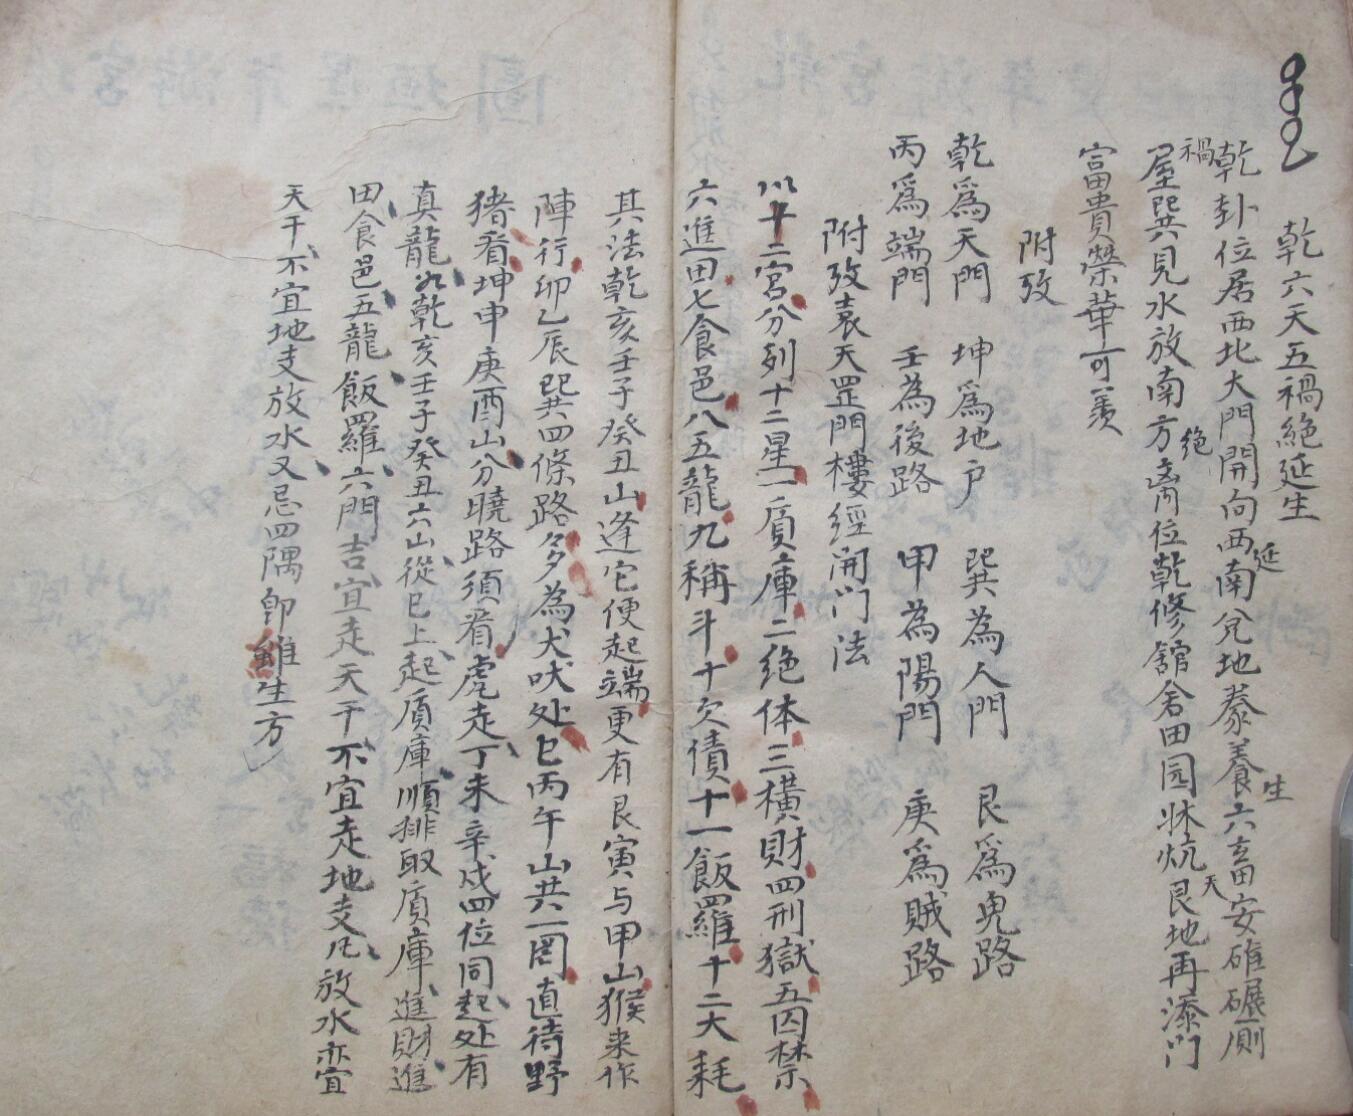 乾六天五禍絶延生
乾卦位居西北大門開向西南兌地泰養六畜安碓碾厠
延
生
禍
屋巽見水放南方离位乾修舘舍田园牀炕艮地再添門
絶
天
富貴榮華可羨
附攷
乾爲天門 坤爲地户 巽為人門 艮爲鬼路
丙爲端門 壬為後路 甲為陽門 庚爲賊路
附攷袁天罡門樓經開門法
以十二宮分列十二星一質庫二绝体三横財四刑獄五囚禁
六進田七食邑八五龍九稱斗十欠債十一飯羅十二大耗
其法乾亥壬子癸丑山逢它便起端更有艮寅与甲山猴来作
陣行卯乙辰巽四條路多為犬吠处巳丙午山共一圈直待野
猪看坤申庚酉山分曉路須看虎走丁未辛戍四位同起处有
真龍如乾亥壬子癸丑六山從巳上起质庫順排取质庫進財進
田食邑五龍飯羅六門吉宜走天干不宜走地支凡放水亦宜
天干不宜地支放水又忌四隅卽維生方